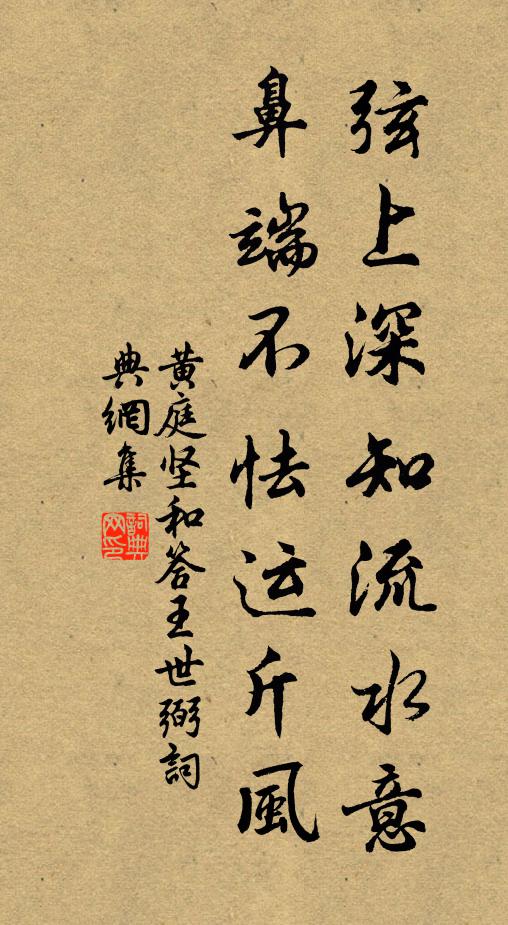 弦上深知流水意
鼻端不怯运斤風
黄庭坚和答王世弼詞
典網集
詞典网印